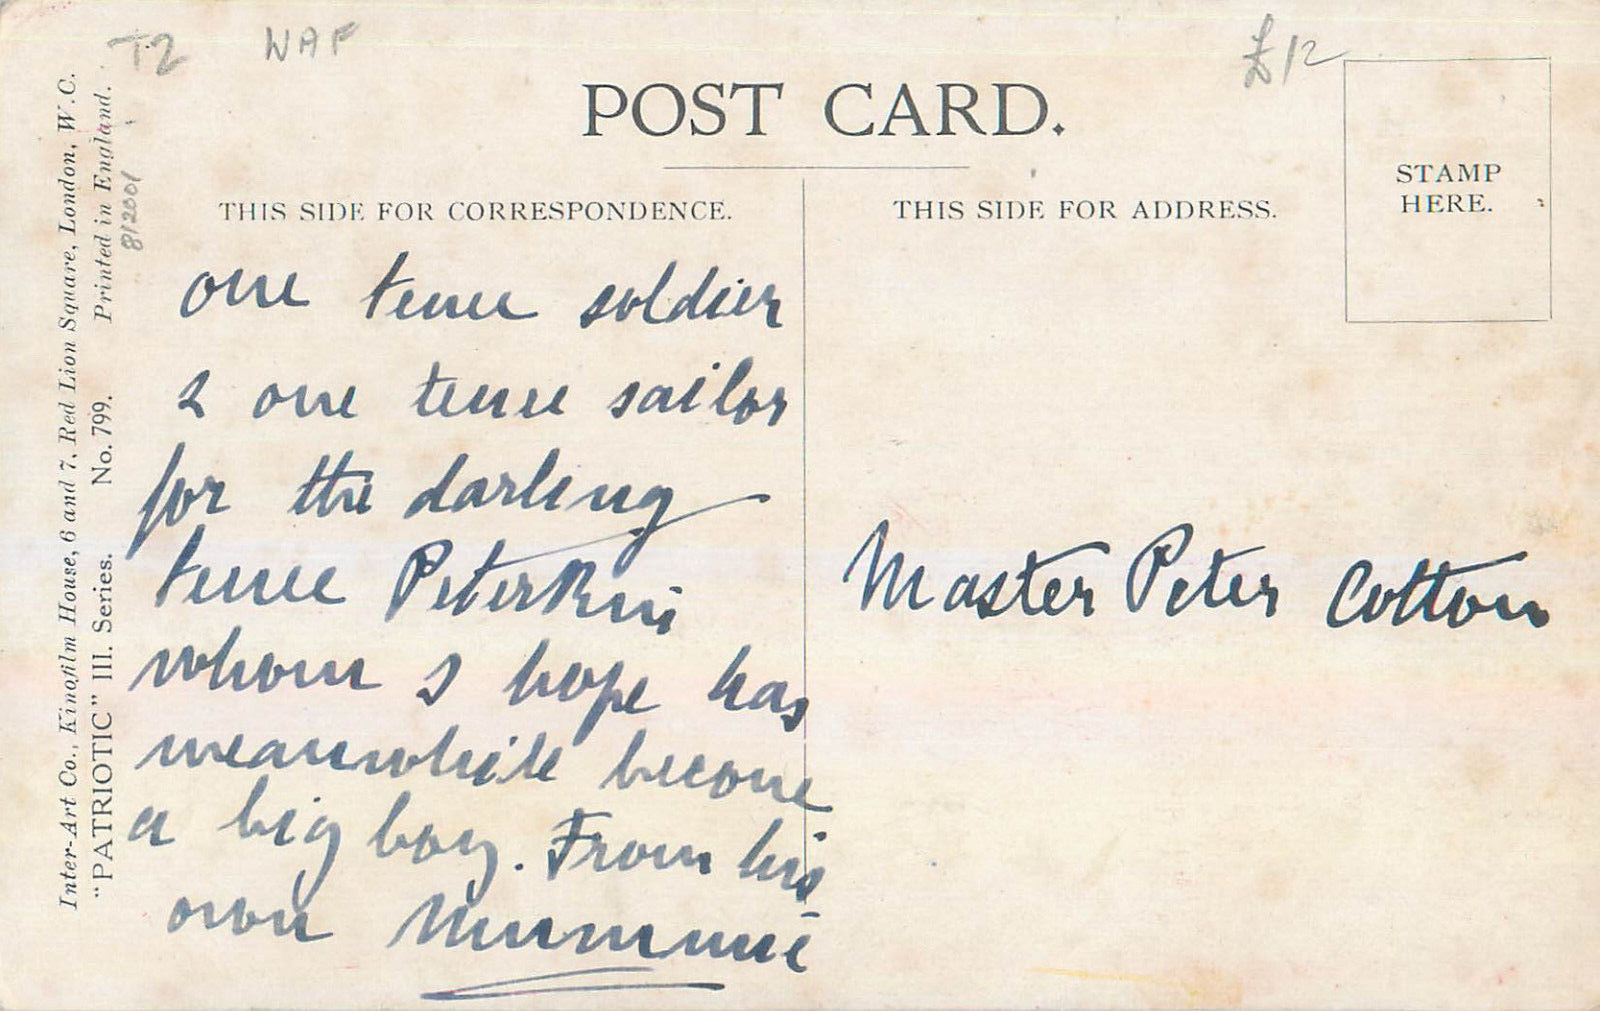 T2 WAF £12
POST CARD.
STAMP
HERE.
THIS SIDE FOR CORRESPONDENCE.
THIS SIDE FOR ADDRESS.
one teenie soldier
& one teenie sailor
for the darling
teenie Peterkin
whom I hope has
meanwhile become
a big boy. From his
own Mummie
Master Peter Cotton
Inter-Art Co., Kinofilm House, 6 and 7, Red Lion Square, London, W.C.
"PATRIOTIC" III. Series. No. 799. Printed in England.